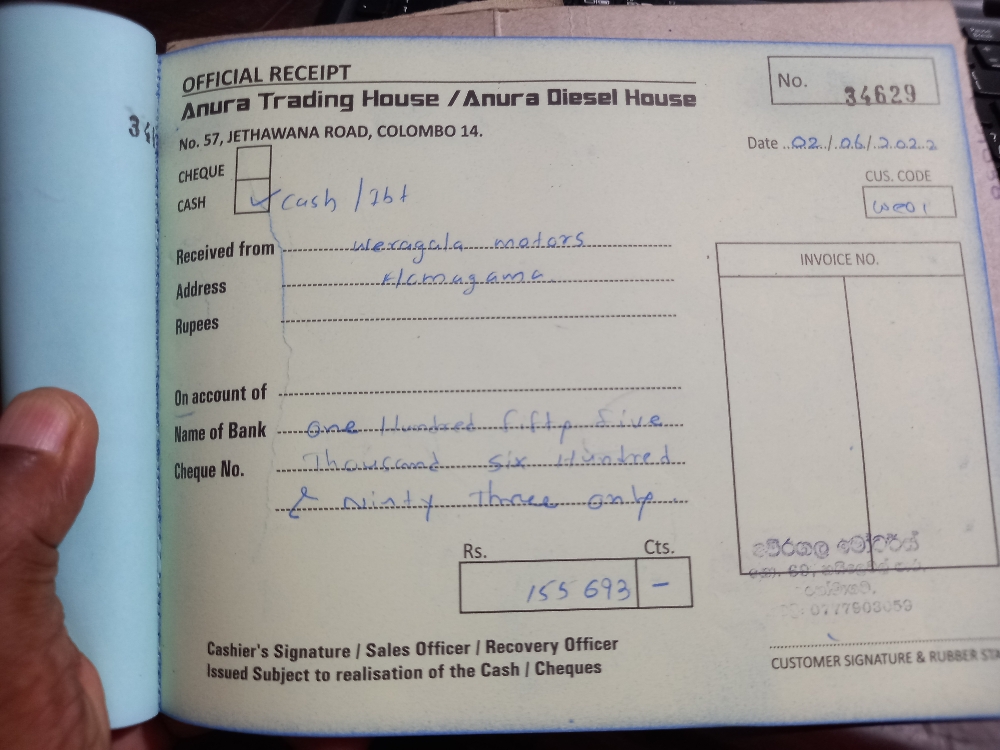 OFFICIAL RECEIPT
Anura Trading House / Anura Diesel House
No. 57, JETHAWANA ROAD, COLOMBO 14.
No. 34629
Date 02/06/2022
CHEQUE
CASH ✓ Cash / Ibt
CUS. CODE
We01
Received from Weragala motors
Address
Rupees
INVOICE NO.
On account of
Name of Bank One Hundred fifty five
Cheque No. Thousand six Hundred
& Ninty Three only
Rs. Cts.
155 693 –
වේරගල මෝටර්ස්
0777603059
Cashier's Signature / Sales Officer / Recovery Officer
Issued Subject to realisation of the Cash / Cheques
CUSTOMER SIGNATURE & RUBBER STA